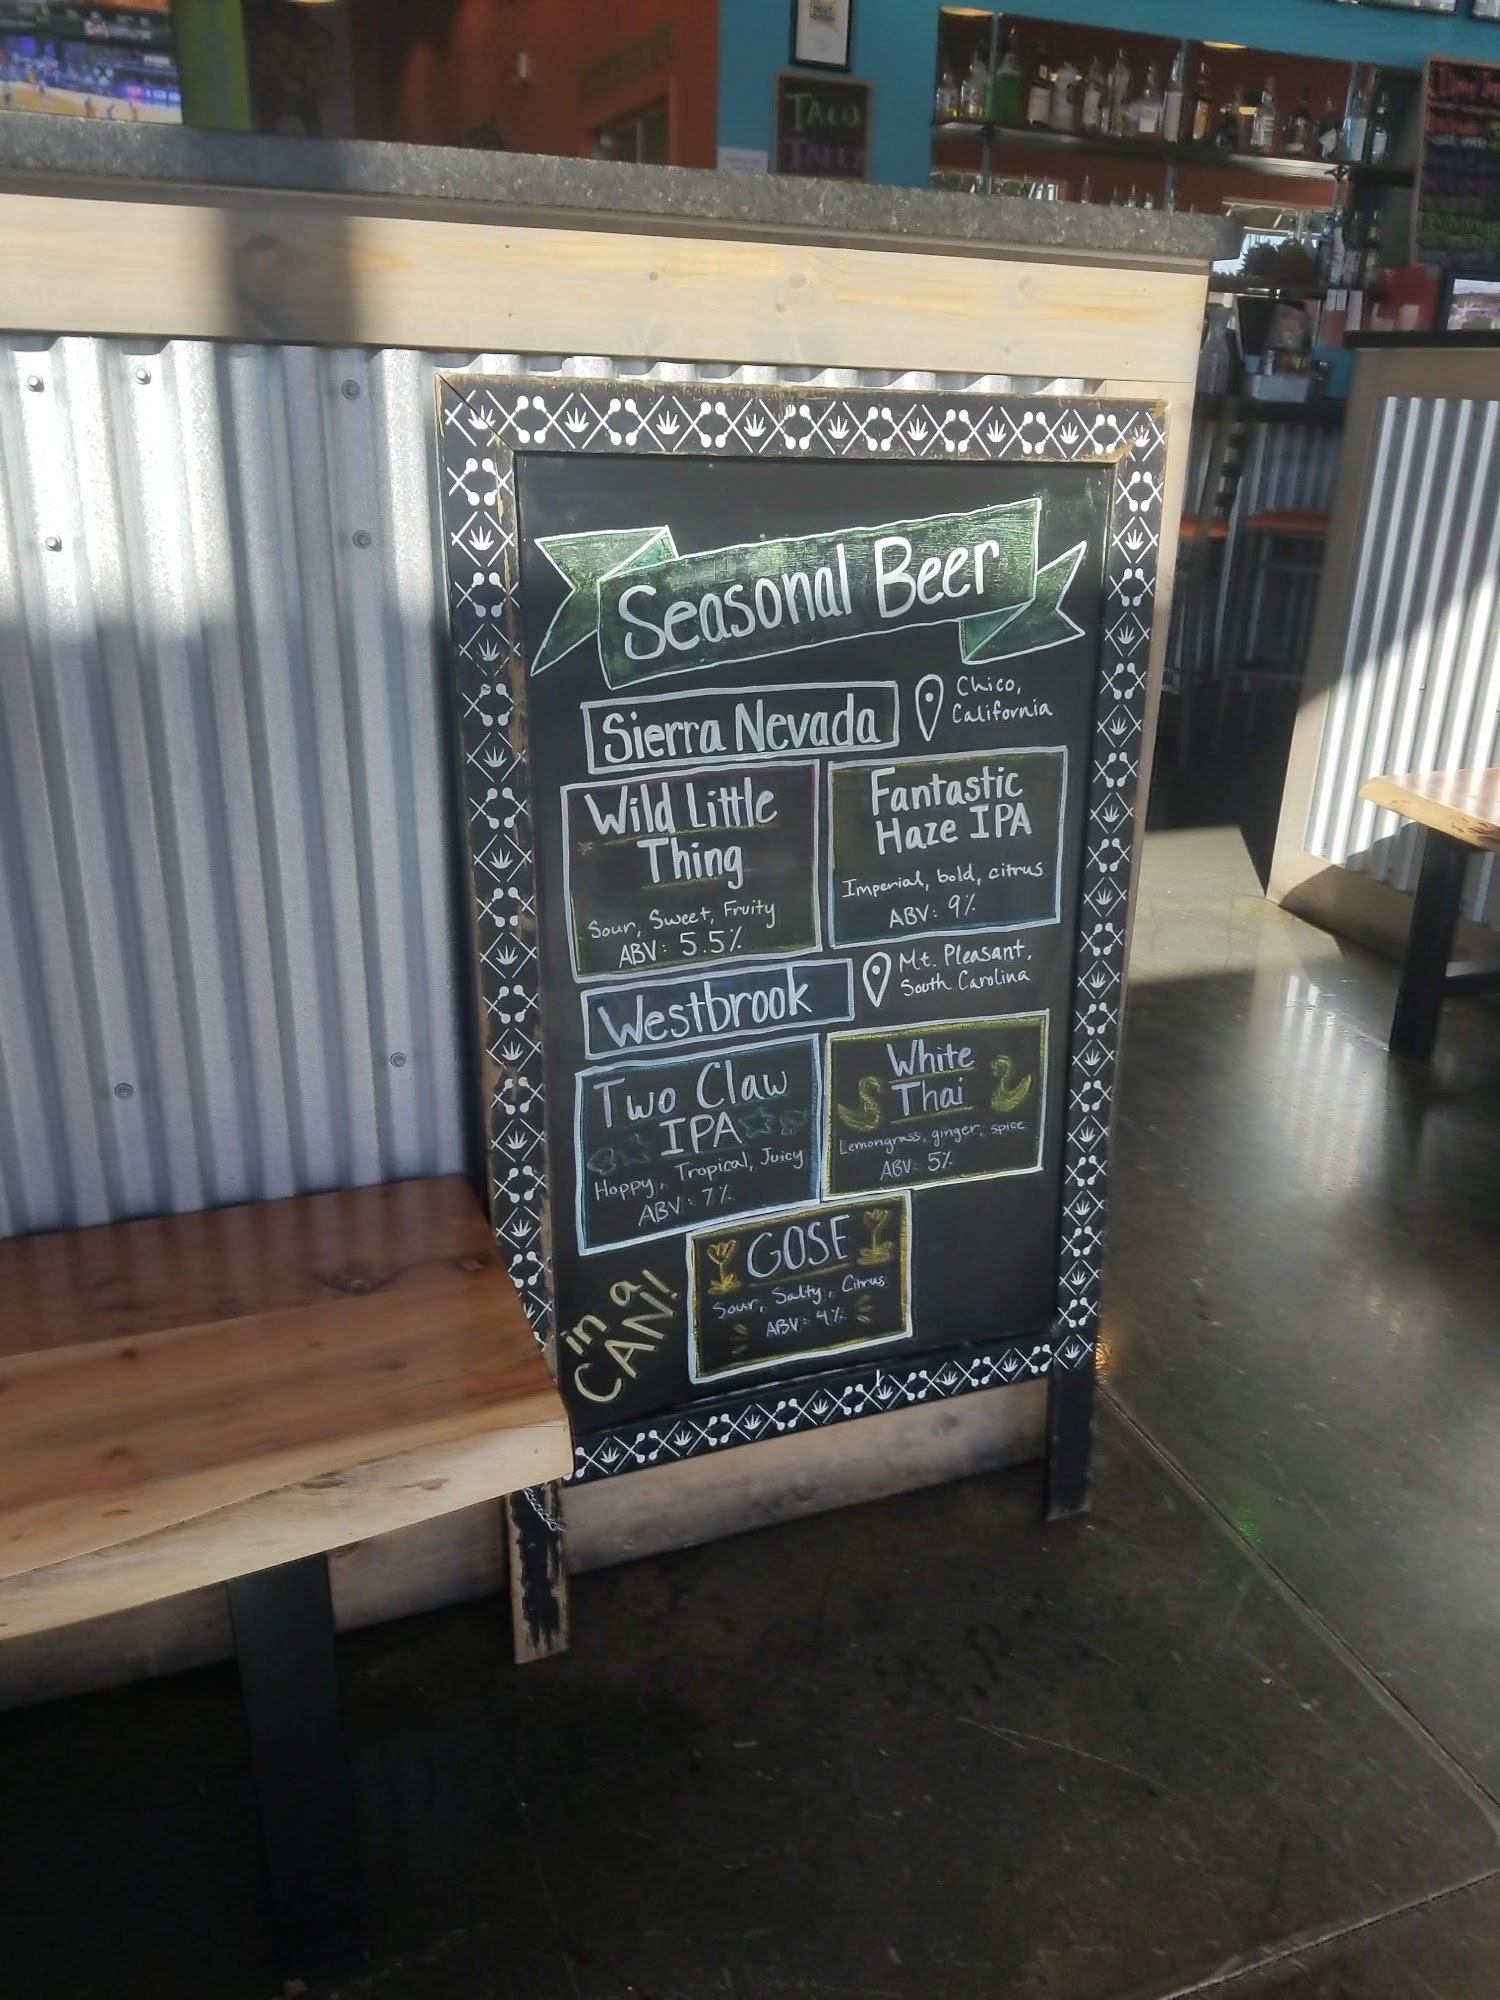 TACO
TALLY
Seasonal Beer
Sierra Nevada
Chico,
California
Wild Little
Thing
Sour, Sweet, Fruity
ABV: 5.5%
Fantastic
Haze IPA
Imperial, bold, citrus
ABV: 9%
Westbrook
Mt. Pleasant,
South Carolina
Two Claw
IPA
Hoppy, Tropical, Juicy
ABV: 7%
White
Thai
Lemongrass, ginger, spice
ABV: 5%
in a
CAN!
GOSE
Sour, Salty, Citrus
ABV: 4%